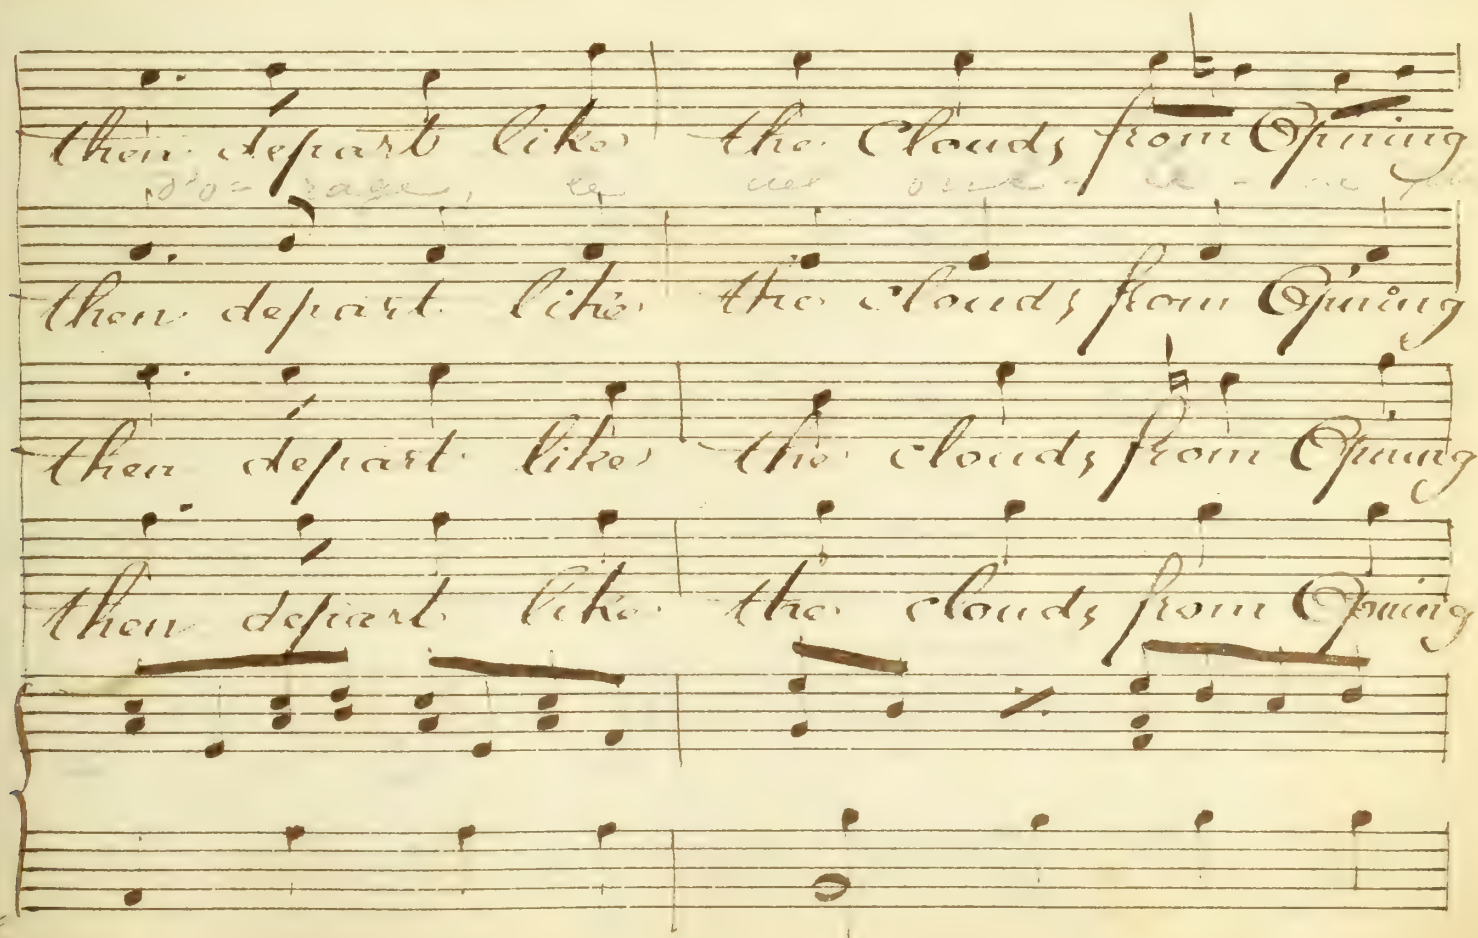 then depart like the Clouds from Opning
then depart like the clouds from Op'ning
then depart like the clouds from Opning
then depart like the clouds from Opning